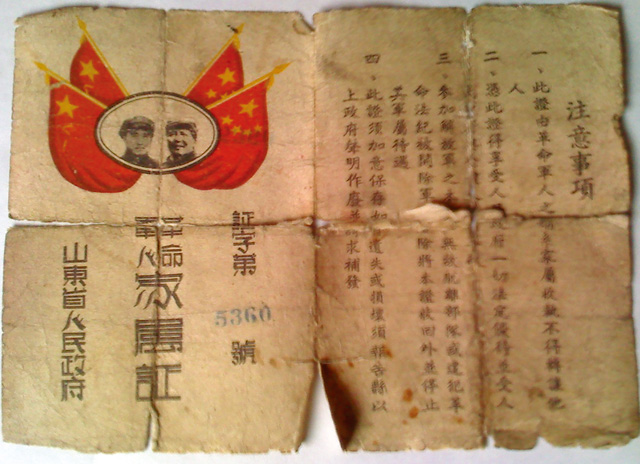 注意事項
一、此證由革命軍人之家屬收執不得轉讓他
人
二、憑此證得享受人民政府一切法定優待並受人
三、參加解放軍之 無故脫離部隊或違犯革
命法紀被開除軍 除將本證收回外並停止
其軍屬待遇
四、此證須加意保存如有遺失或損壞須報告縣以
上政府聲明作廢並請求補發
証字第
5360
號
革命
軍人
家屬証
山東省人民政府